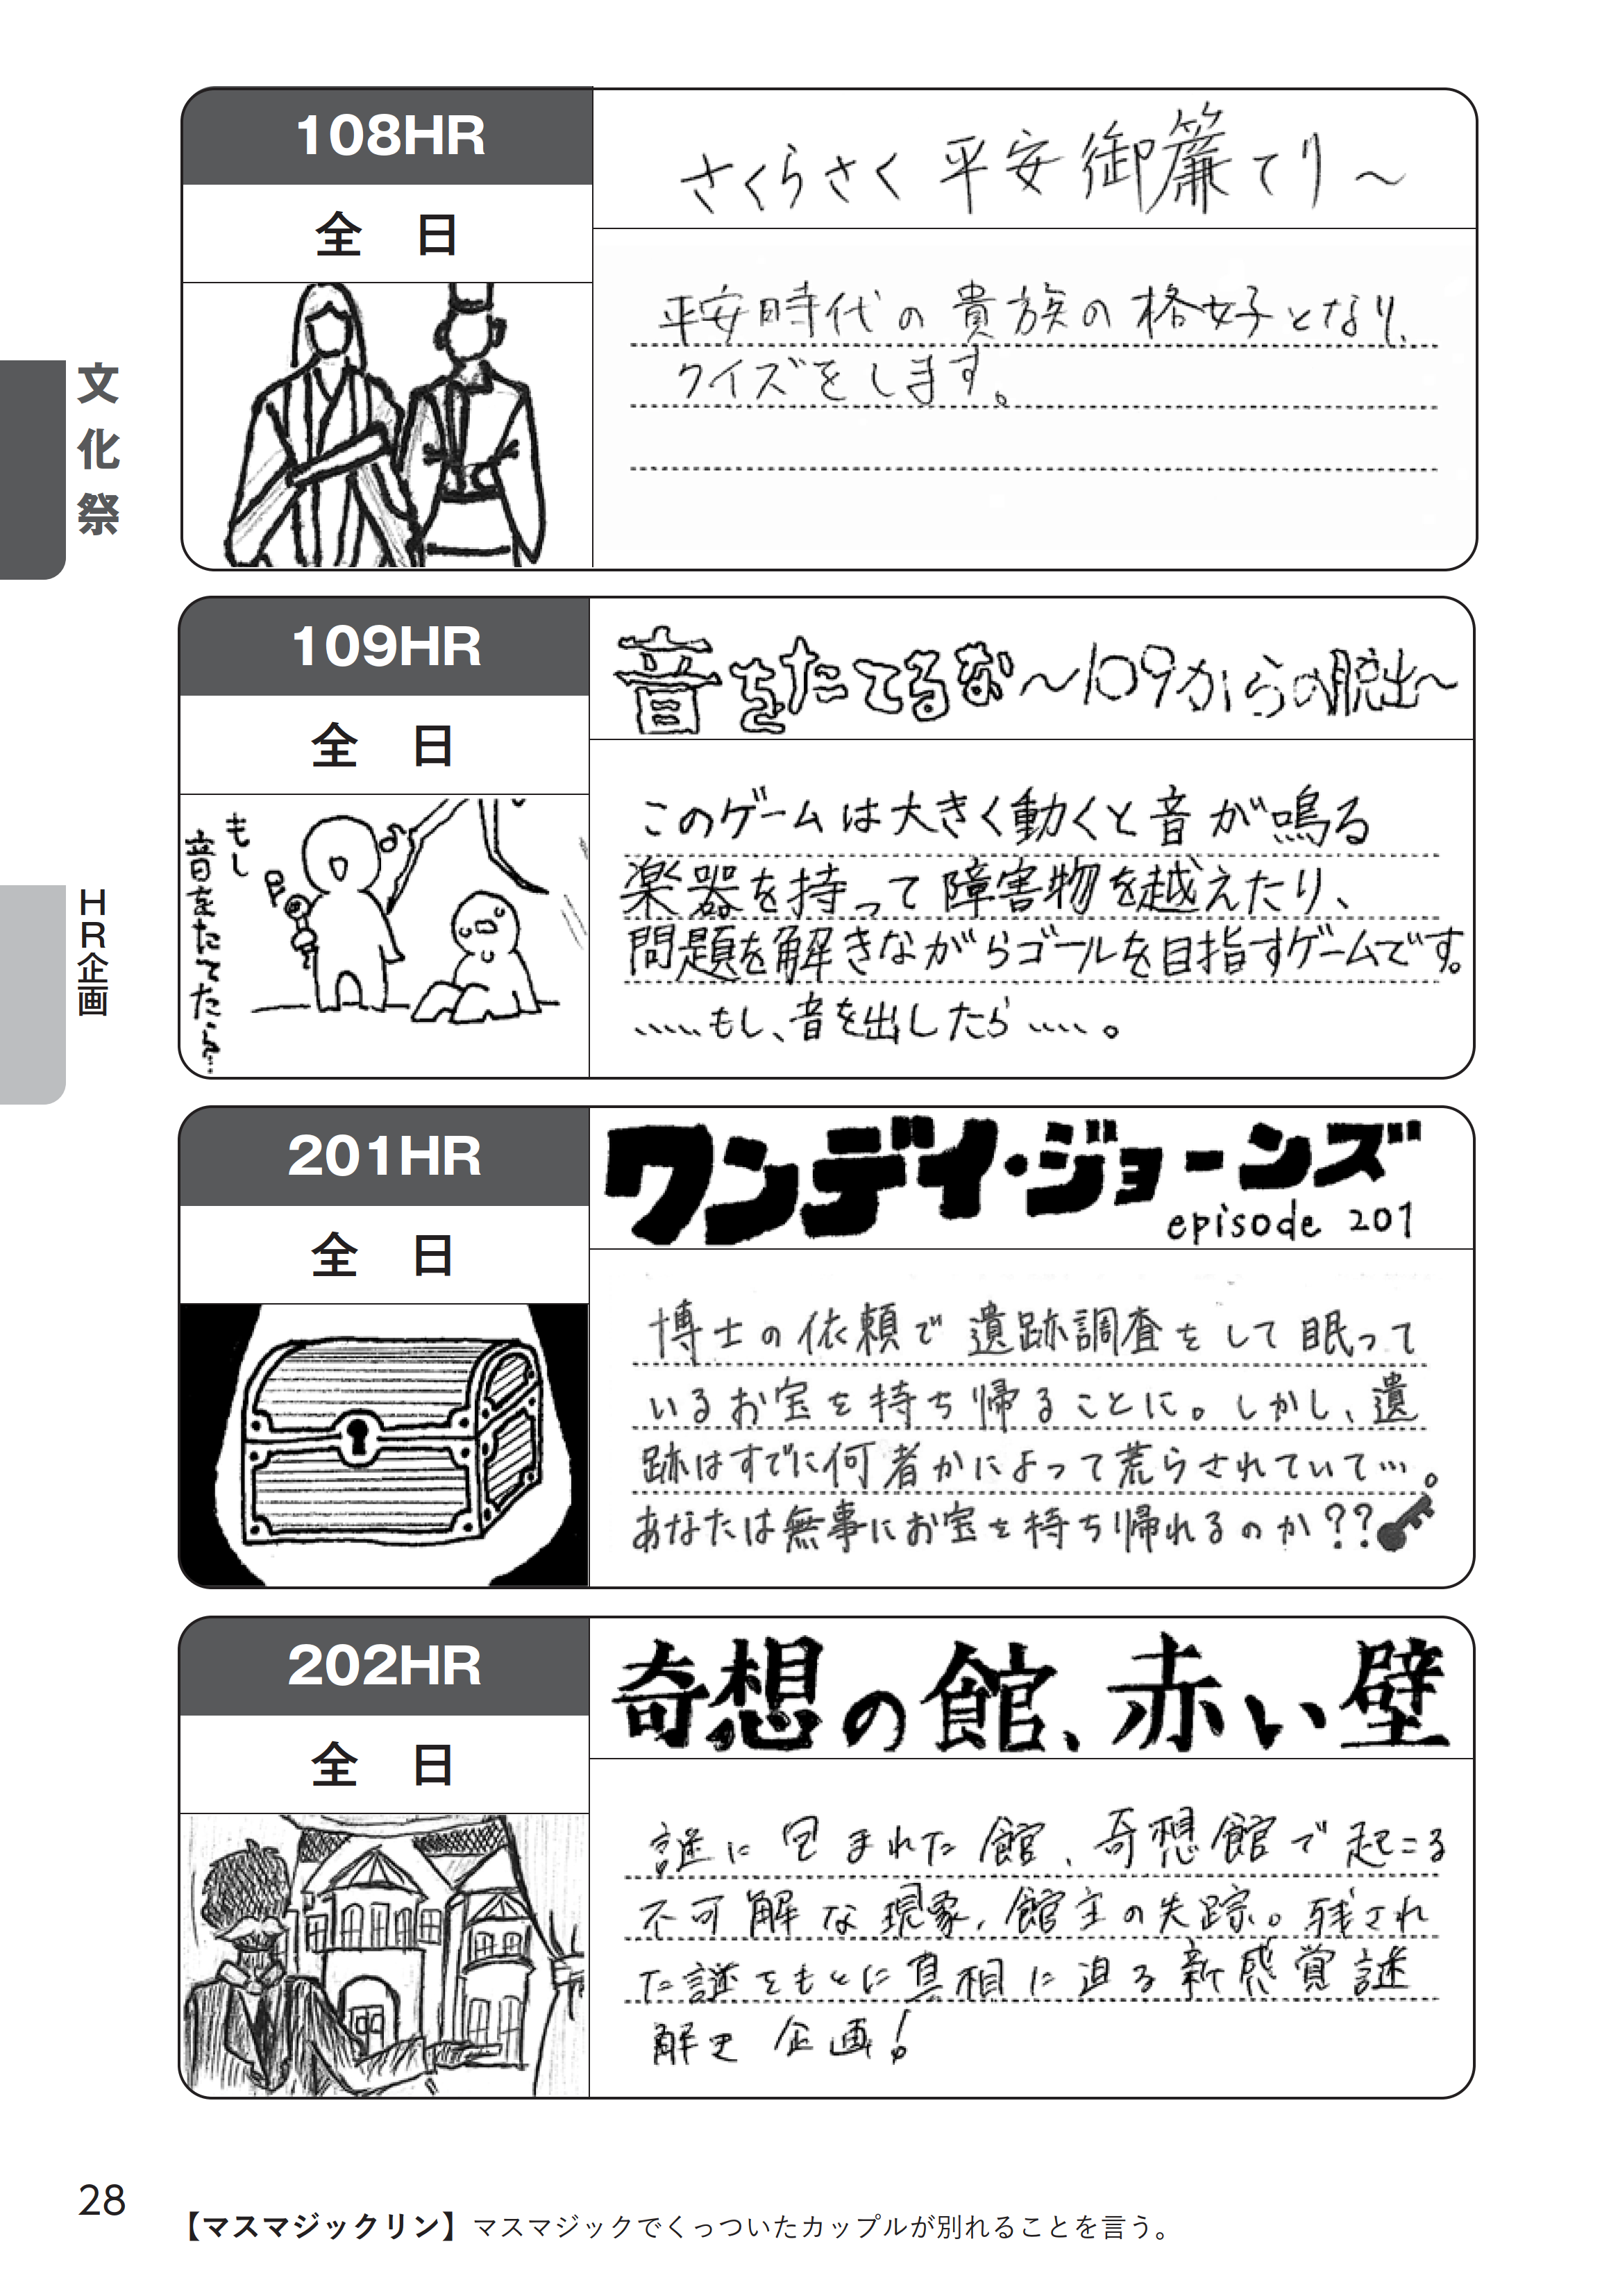 文化祭
HR企画
108HR
全 日
さくらさく 平安御簾てり〜
平安時代の貴族の格好となり、
クイズをします。
109HR
全 日
もし
音をたてたら…
音をたてるな〜109からの脱出〜
このゲームは大きく動くと音が鳴る
楽器を持って障害物を越えたり、
問題を解きながらゴールを目指すゲームです。
……もし、音を出したら……。
201HR
全 日
ワンデイ・ジョーンズ
episode 201
博士の依頼で遺跡調査をして眠って
いるお宝を持ち帰ることに。しかし、遺
跡はすでに何者かによって荒らされていて…。
あなたは無事にお宝を持ち帰れるのか??
202HR
全 日
奇想の館、赤い壁
謎に包まれた館、奇想館で起こる
不可解な現象、館主の失踪。残され
た謎をもとに真相に迫る新感覚謎
解き企画!
28
【マスマジックリン】マスマジックでくっついたカップルが別れることを言う。